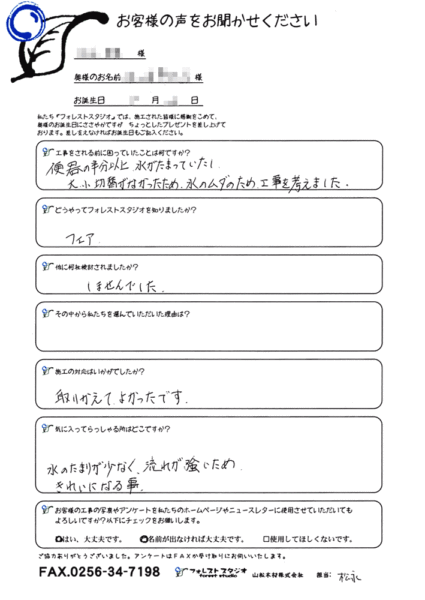 お客様の声をお聞かせください
様
奥様のお名前 様
お誕生日 月 日
私たち『フォレストスタジオ』では、施工された皆様に感謝をこめて、
奥様のお誕生日にささやかですが ちょっとしたプレゼントを差し上げて
おります。差し支えなければお誕生日もご記入ください。
工事をされる前に困っていたことは何ですか?
便器の半分以上 水がたまっていたし
大小切替がなかったため、水のムダのため、工事を考えました。
どうやってフォレストスタジオを知りましたか?
フェア
他に何社検討されましたか?
しませんでした。
その中から私たちを選んでいただいた理由は?
施工の対応はいかがでしたか?
取りかえて、よかったです。
気に入ってらっしゃる所はどこですか?
水のたまりが少なく、流れが強いため
きれいになる事。
お客様の工事の写真やアンケートを私たちのホームページやニュースレターに使用させていただいても
よろしいですか?以下にチェックをお願いします。
はい、大丈夫です。 名前が出なければ大丈夫です。 □使用してほしくない。
ご協力ありがとうございました。アンケートはFAXか受け取りにお伺いいたします。
FAX.0256-34-7198 フォレストスタジオ forest studio 山松木材株式会社 担当: 松永